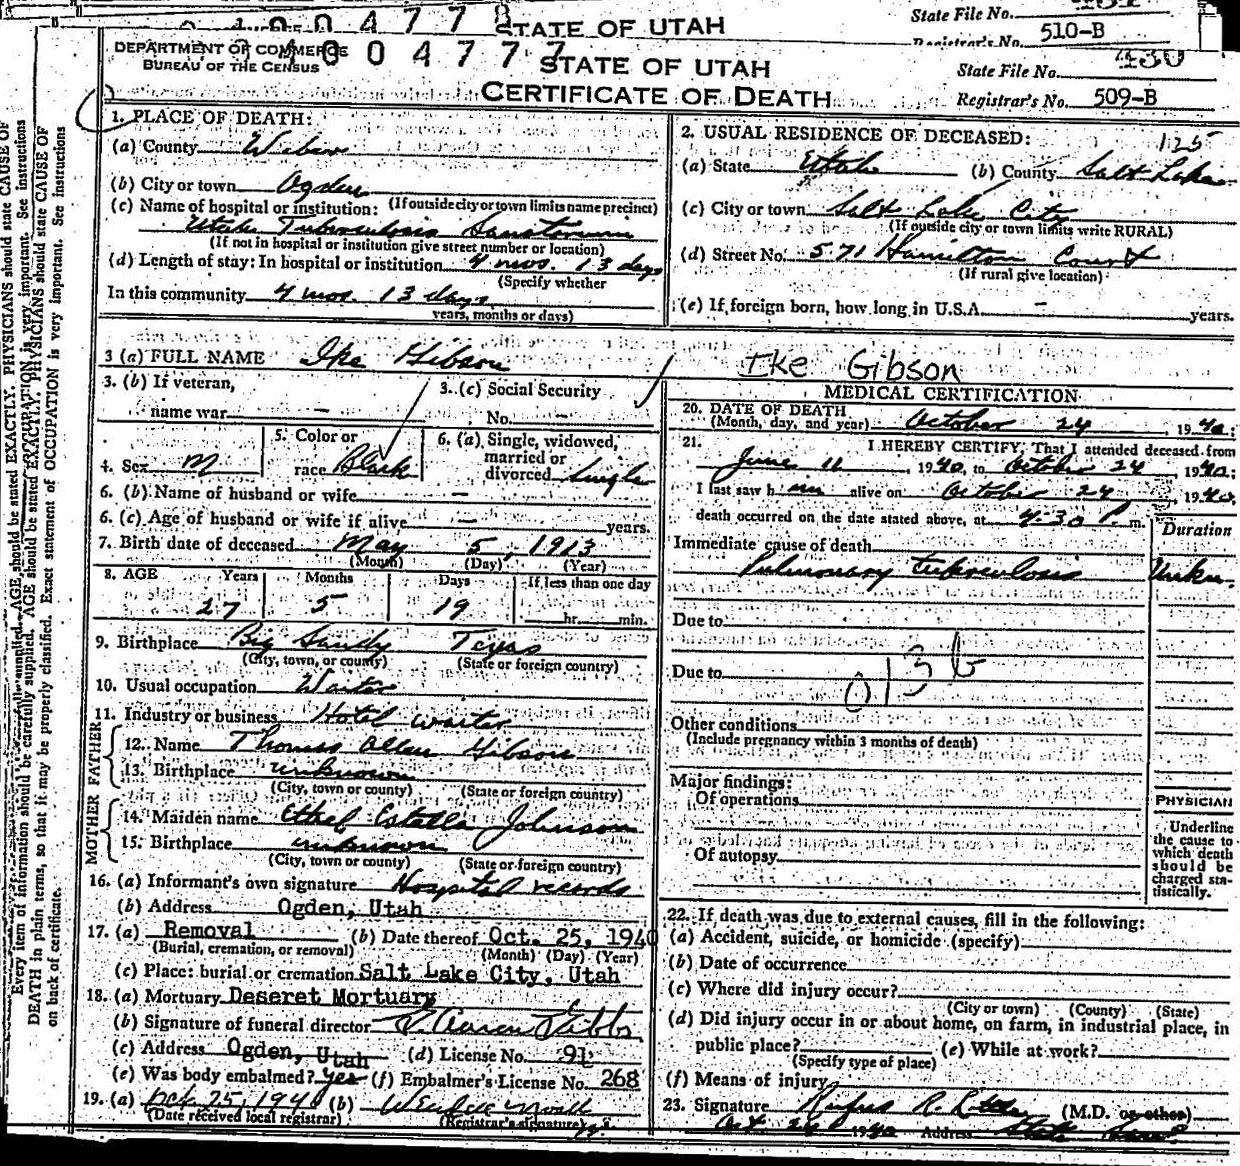 1004778
STATE OF UTAH
State File No.
Registrar's No. 510-B
DEPARTMENT OF COMMERCE
BUREAU OF THE CENSUS
400477
STATE OF UTAH
CERTIFICATE OF DEATH
State File No. 430
Registrar's No. 509-B
1. PLACE OF DEATH:
(a) County Weber
(b) City or town Ogden
(If outside city or town limits name precinct)
(c) Name of hospital or institution:
Utah Tuberculosis Sanatorium
(If not in hospital or institution give street number or location)
(d) Length of stay: In hospital or institution 4 mos. 13 days
(Specify whether
In this community 4 mos. 13 days
years, months or days)
2. USUAL RESIDENCE OF DECEASED:
125
(a) State Utah (b) County Salt Lake
(c) City or town Salt Lake City
(If outside city or town limits write RURAL)
(d) Street No. 571 Hamilton Court
(If rural give location)
(e) If foreign born, how long in U.S.A. — years.
3 (a) FULL NAME Ike Gibson
Ike Gibson
3. (b) If veteran,
name war —
3. (c) Social Security
No. —
4. Sex M
5. Color or
race Black
6. (a) Single, widowed,
married or
divorced Single
6. (b) Name of husband or wife —
6. (c) Age of husband or wife if alive — years.
7. Birth date of deceased May 5, 1913
(Month) (Day) (Year)
8. AGE Years Months Days If less than one day
27 5 19 hr. min.
9. Birthplace Big Sandy Texas
(City, town, or county) (State or foreign country)
10. Usual occupation Waiter
11. Industry or business Hotel waiter
FATHER
12. Name Thomas Allen Gibson
13. Birthplace unknown
(City, town or county) (State or foreign country)
MOTHER
14. Maiden name Ethel Estella Johnson
15. Birthplace unknown
(City, town or county) (State or foreign country)
16. (a) Informant's own signature Hospital records
(b) Address Ogden, Utah
17. (a) Removal (b) Date thereof Oct. 25, 1940
(Burial, cremation, or removal) (Month) (Day) (Year)
(c) Place: burial or cremation Salt Lake City, Utah
18. (a) Mortuary Deseret Mortuary
(b) Signature of funeral director
(c) Address Ogden, Utah (d) License No. 91
(e) Was body embalmed? yes (f) Embalmer's License No. 268
19. (a) Oct 25, 1940 (b)
(Date received local registrar) (Registrar's signature)
MEDICAL CERTIFICATION
20. DATE OF DEATH
(Month, day, and year) October 24 1940;
21. I HEREBY CERTIFY, That I attended deceased from
June 11, 1940, to October 24 1940;
I last saw him alive on October 24 1940,
death occurred on the date stated above, at 4:30 P. m.
Duration
Immediate cause of death
Pulmonary tuberculosis Unkn.
Due to
Due to
0136
Other conditions
(Include pregnancy within 3 months of death)
Major findings:
Of operations
Of autopsy
PHYSICIAN
Underline
the cause to
which death
should be
charged sta-
tistically.
22. If death was due to external causes, fill in the following:
(a) Accident, suicide, or homicide (specify)
(b) Date of occurrence
(c) Where did injury occur?
(City or town) (County) (State)
(d) Did injury occur in or about home, on farm, in industrial place, in
public place? (e) While at work?
(Specify type of place)
(f) Means of injury
23. Signature Rufus R. (M.D. or other)
Oct. 24 1940 Address State
Every item of information should be carefully supplied. AGE should be stated EXACTLY. PHYSICIANS should state CAUSE OF
DEATH in plain terms, so that it may be properly classified. Exact statement of OCCUPATION is very important. See instructions
on back of certificate.